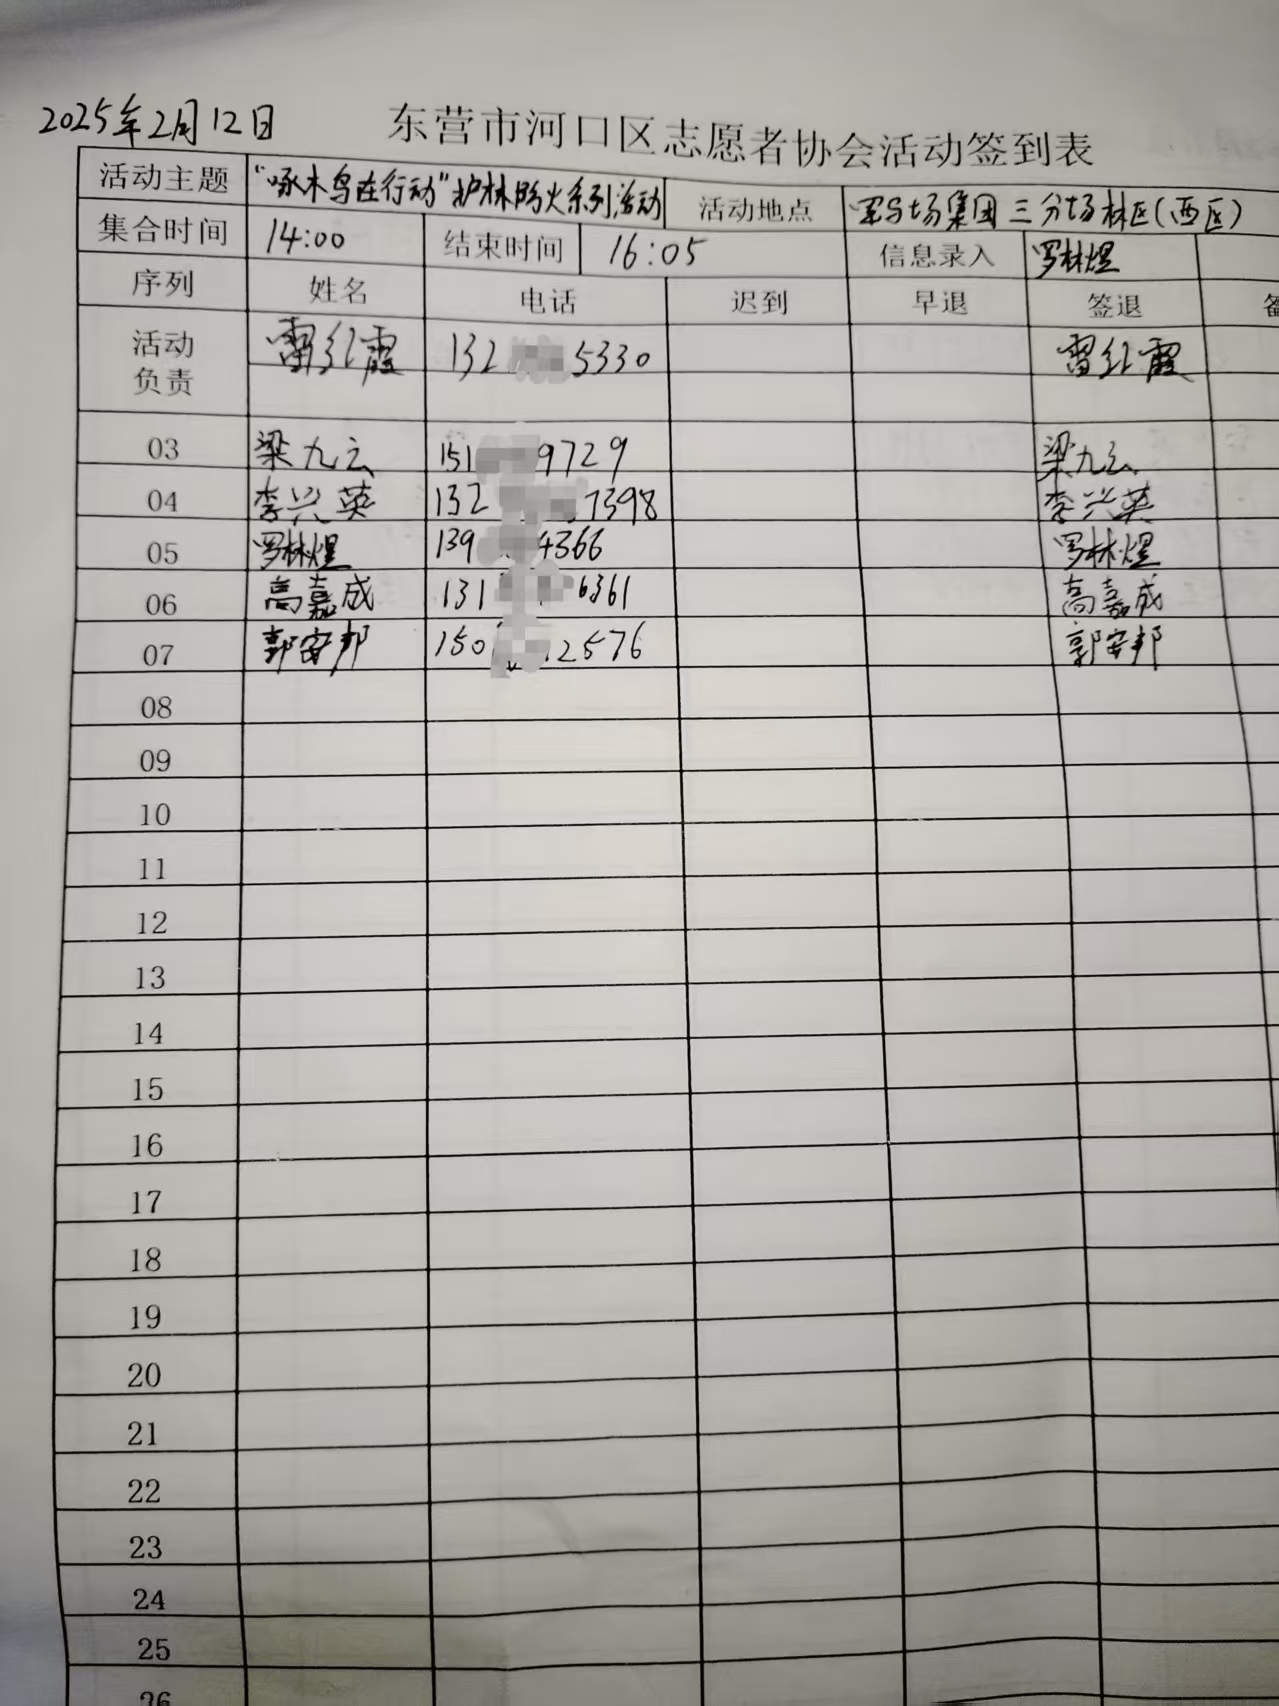 2025年2月12日 东营市河口区志愿者协会活动签到表
活动主题 “啄木鸟在行动”护林防火系列活动 活动地点 军马场集团三分场林区(西区)
集合时间 14:00 结束时间 16:05 信息录入 罗林煜
序列 姓名 电话 迟到 早退 签退
活动负责 雷红霞 132 5330 雷红霞
03 梁九云 151 9729 梁九云
04 李兴英 132 7398 李兴英
05 罗林煜 139 4366 罗林煜
06 高嘉成 131 6361 高嘉成
07 郭安邦 150 2576 郭安邦
08
09
10
11
12
13
14
15
16
17
18
19
20
21
22
23
24
25
26